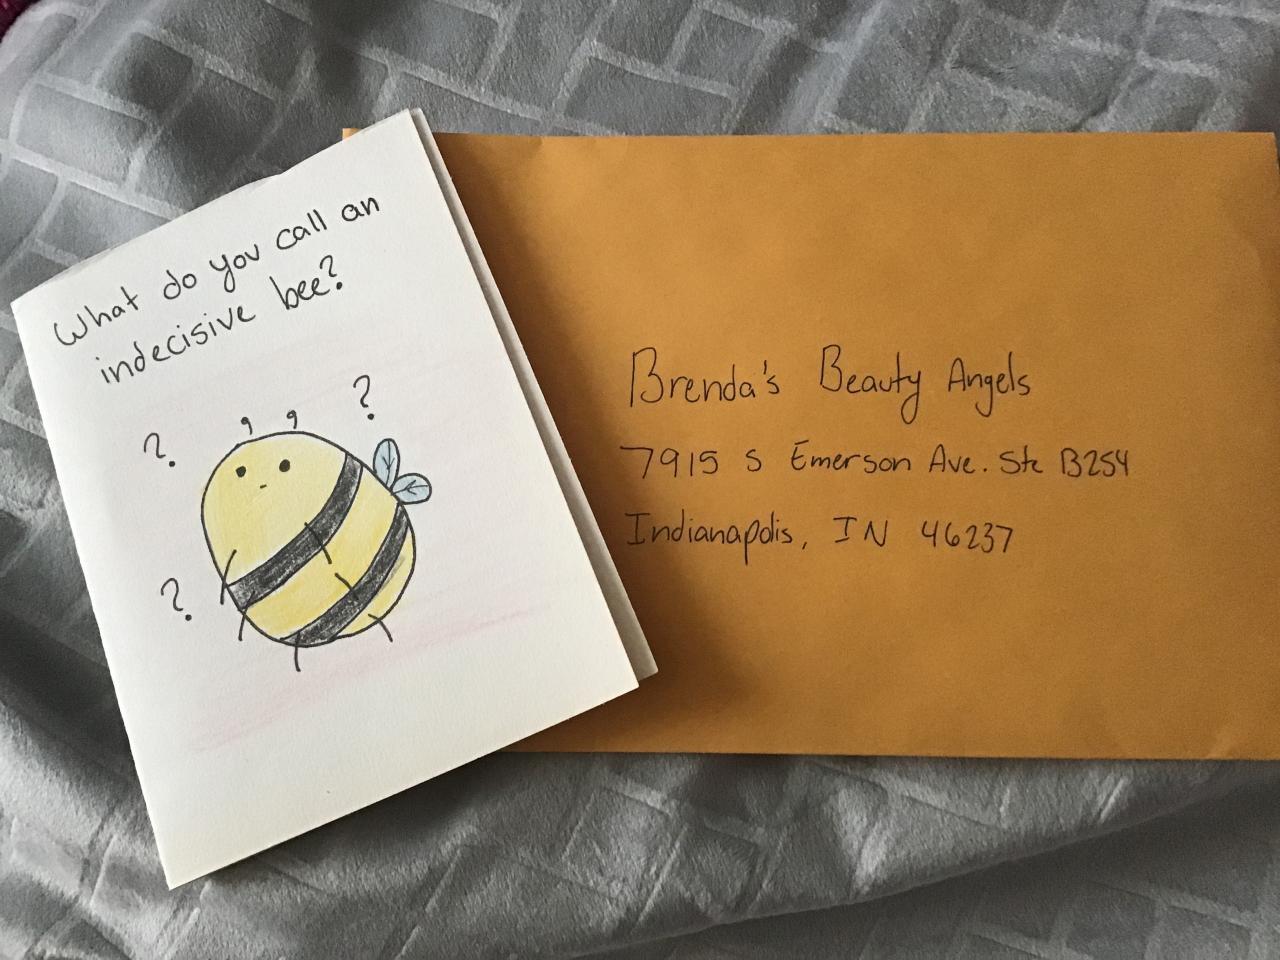 What do you call an
indecisive bee?
?
?
?
Brenda's Beauty Angels
7915 S Emerson Ave. Ste B254
Indianapolis, IN 46237